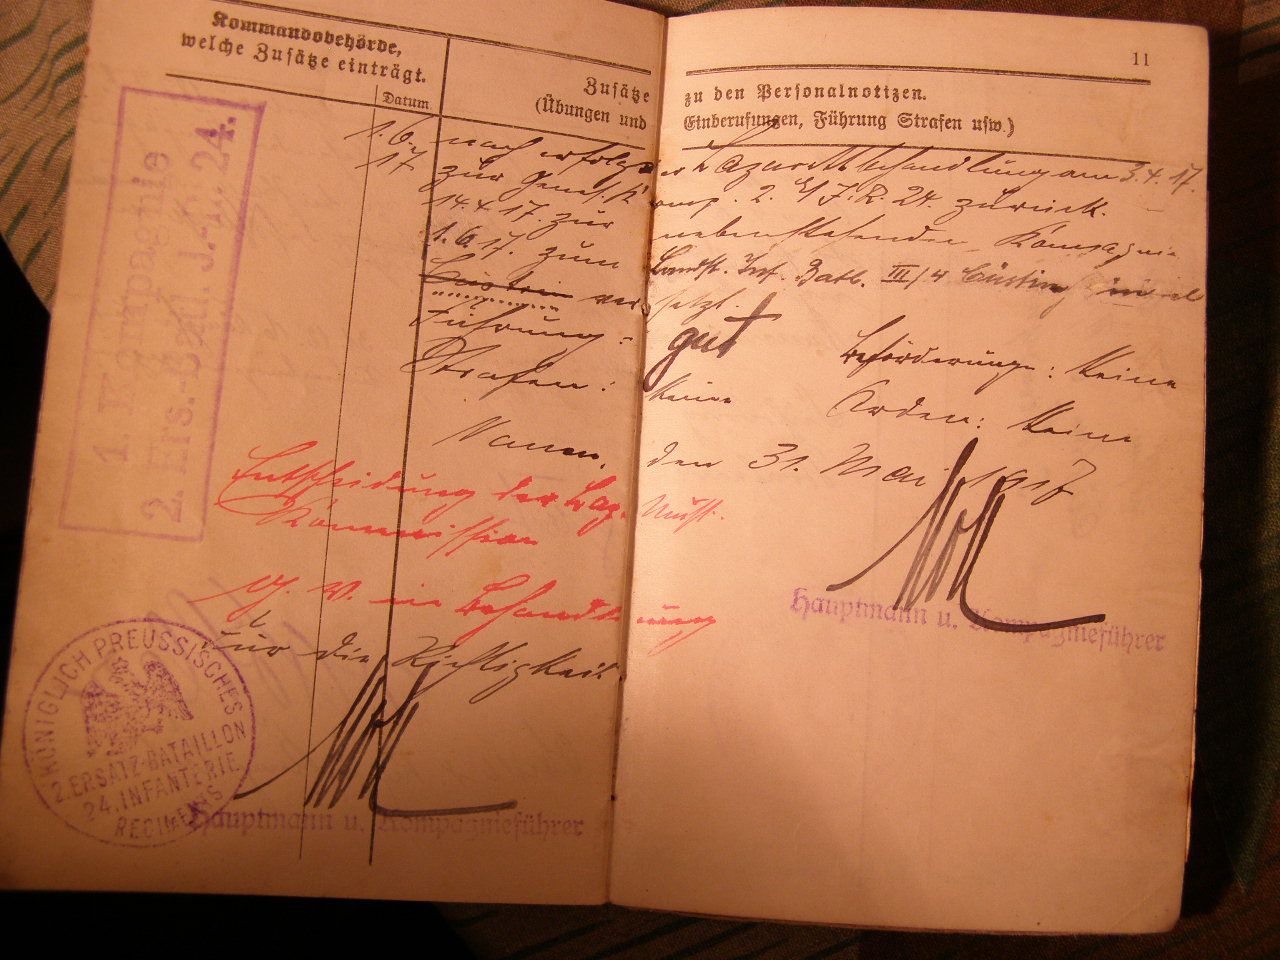 Kommandobehörde,
welche Zusätze einträgt.
Datum
Zusätze
(Übungen und
11
zu den Personalnotizen.
Einberufungen, Führung Strafen usw.)
1. Kompagnie
2. Ers.-Batl. J.-R. 24.
1. 6. 17 nach erfolgter Lazarettbehandlung am 3. 4. 17.
zur Genes. K omp. 2. E/J. R. 24 zurück.
14. 4. 17. zur nebenstehenden Kompagnie
1. 6. 17. zum Landst. Inf. Batl. III/4 Cüstrin
Cüstrin versetzt.
Führung: gut Beförderung: Keine
Strafen: Keine Orden: Keine
Nauen, den 31. Mai 1917
Entscheidung der Musst.
Kommission
g. v. in Behandlung
Für die Richtigkeit
Hauptmann u. Kompagnieführer
KÖNIGLICH PREUSSISCHES
2. ERSATZ-BATAILLON
24. INFANTERIE
REGIMENTS
Hauptmann u. Kompagnieführer